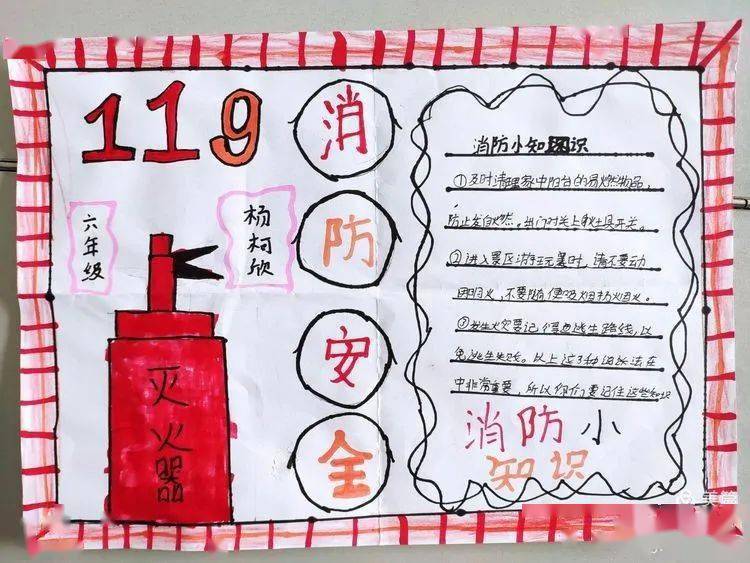 119
六年级
杨柯欣
灭火器
消
防
安
全
消防小知识
①及时清理家中阳台的易燃物品，
防止发自燃。出门时关上电器开关。
②进入景区游玩时，请不要动
用明火，不要随便吸烟扔烟火。
③发生火灾要记得逃生路线，以
免逃生失败。以上这3种方法在
中非常重要，所以你们要记住这些知识
消防小
知识
美篇